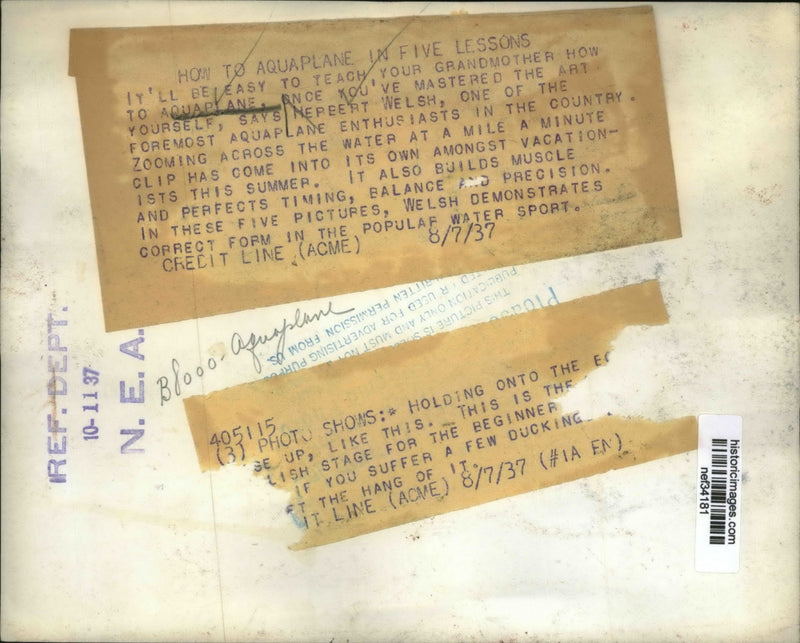 HOW TO AQUAPLANE IN FIVE LESSONS
IT'LL BE EASY TO TEACH YOUR GRANDMOTHER HOW
TO AQUAPLANE, ONCE YOU'VE MASTERED THE ART
YOURSELF, SAYS HERBERT WELSH, ONE OF THE
FOREMOST AQUAPLANE ENTHUSIASTS IN THE COUNTRY.
ZOOMING ACROSS THE WATER AT A MILE A MINUTE
CLIP HAS COME INTO ITS OWN AMONGST VACATION-
ISTS THIS SUMMER. IT ALSO BUILDS MUSCLE
AND PERFECTS TIMING, BALANCE AND PRECISION.
IN THESE FIVE PICTURES, WELSH DEMONSTRATES
CORRECT FORM IN THE POPULAR WATER SPORT.
CREDIT LINE (ACME) 8/7/37
THIS PICTURE IS
PUBLICATION ONLY AND MUST NOT
USED FOR ADVERTISING
WRITTEN PERMISSION FROM US
B8000-Aquaplane
REF. DEPT.
10-11 37
N. E. A.
405115
(3) PHOTO SHOWS:* HOLDING ONTO THE
SE UP, LIKE THIS. THIS IS THE
LISH STAGE FOR THE BEGINNER
IF YOU SUFFER A FEW DUCKING
ET THE HANG OF IT.
IT LINE (ACME) 8/7/37 (#1A EN)
historicimages.com
nef34181